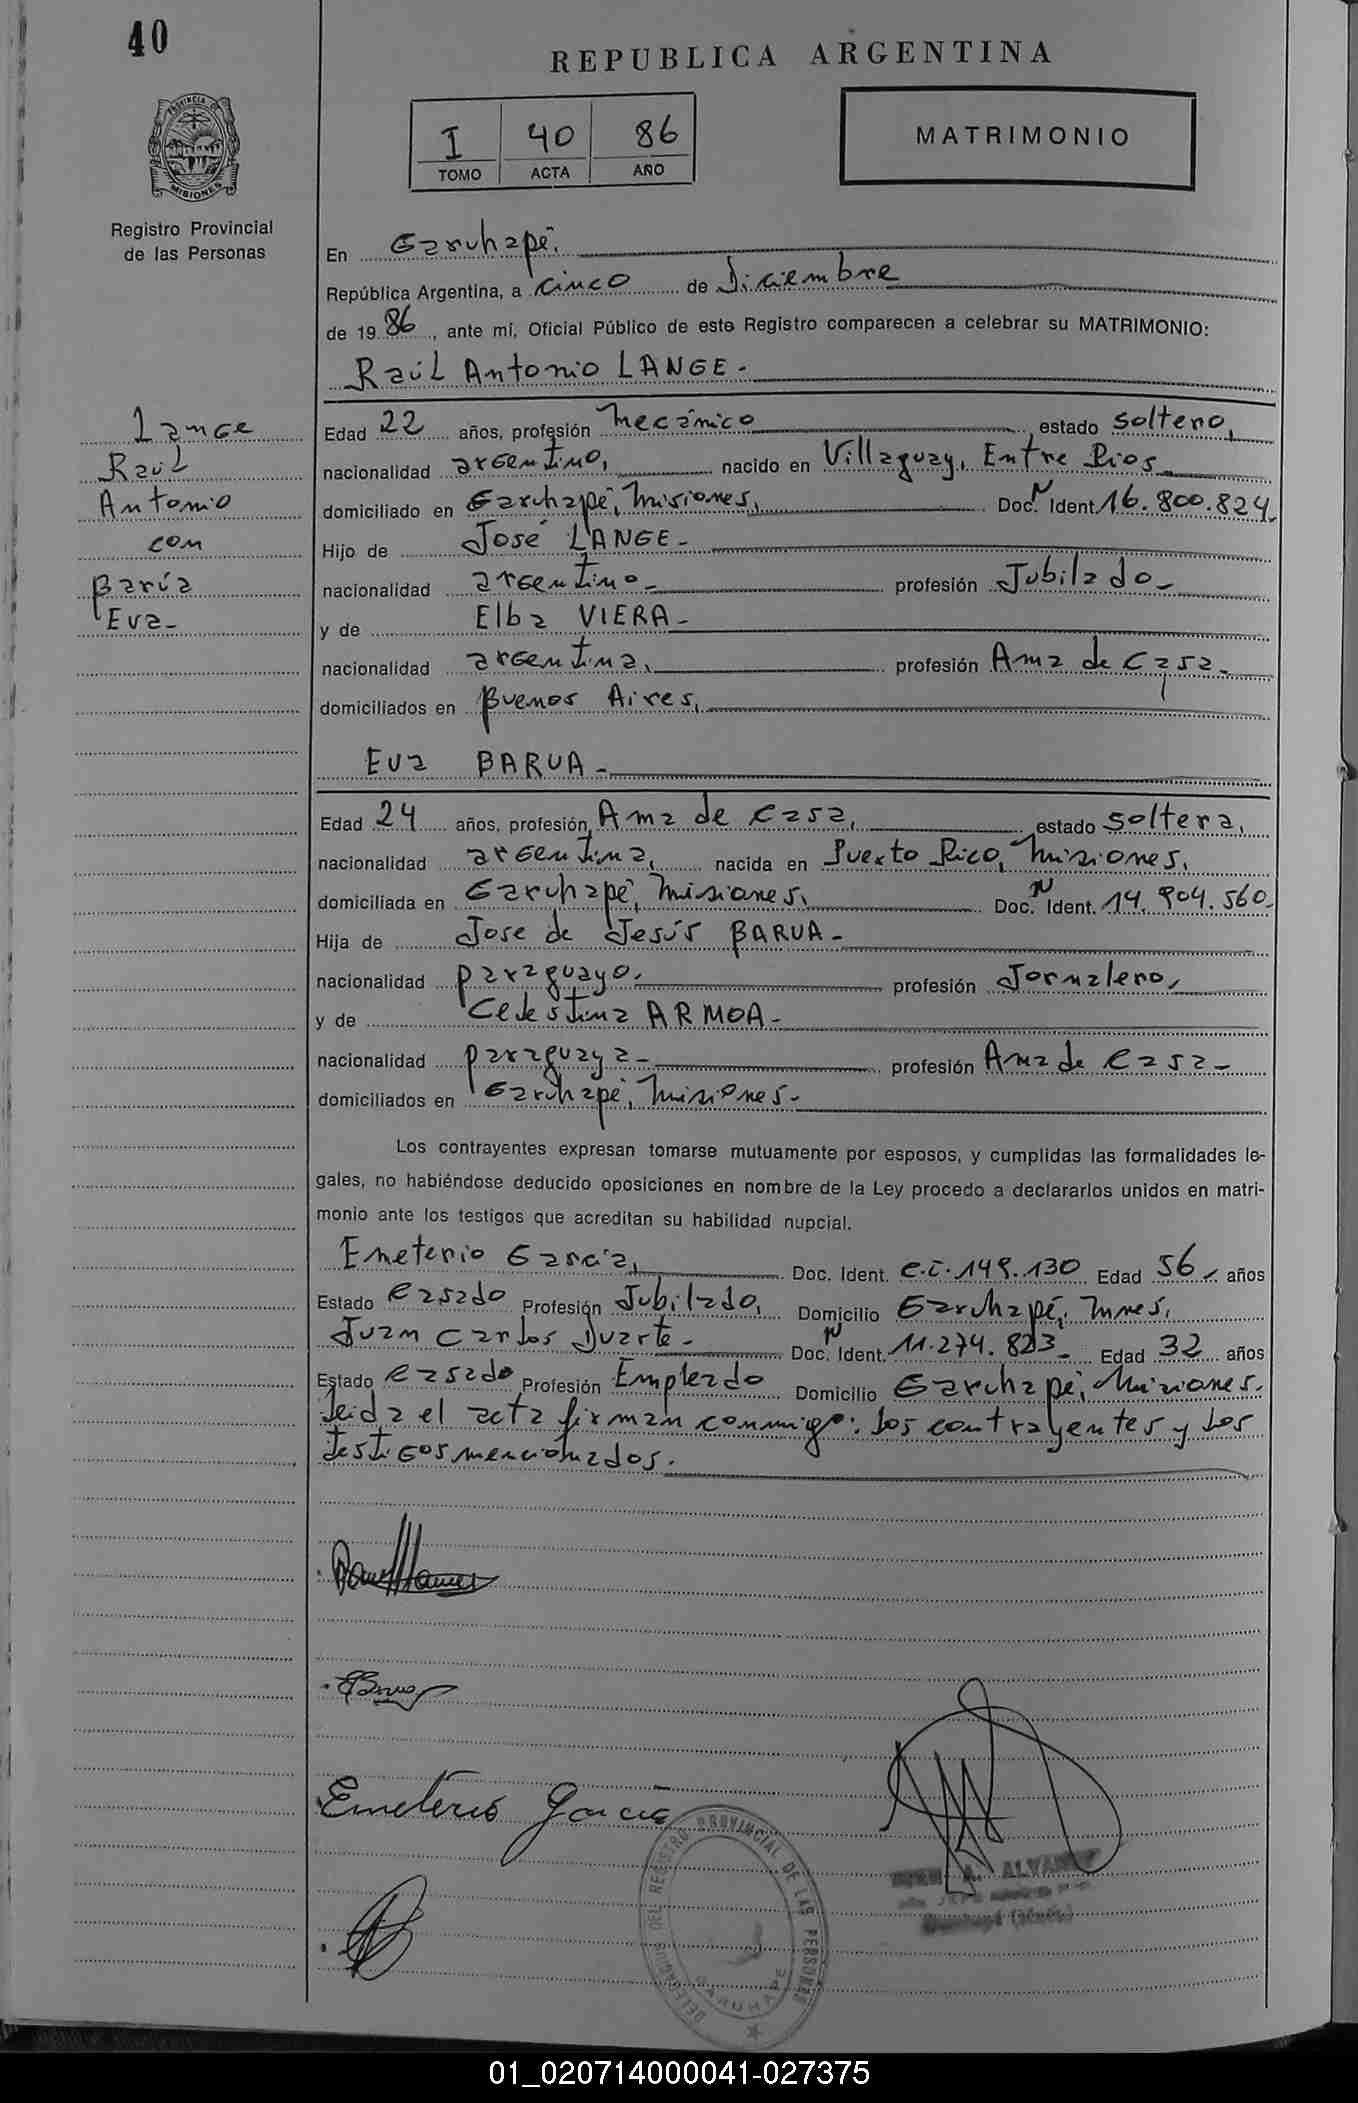 40
REPUBLICA ARGENTINA
PROVINCIA DE
MISIONES
I 40 86
TOMO ACTA AÑO
MATRIMONIO
Registro Provincial
de las Personas
En Garuhapé.
República Argentina, a cinco de Diciembre
de 1986, ante mí, Oficial Público de este Registro comparecen a celebrar su MATRIMONIO:
Raúl Antonio LANGE.
Lange
Raúl
Antonio
con
Barúa
Eva
Edad 22 años, profesión Mecánico estado soltero,
nacionalidad argentino, nacido en Villaguay, Entre Rios
domiciliado en Garuhapé, Misiones, Doc. N Ident. 16.800.824
Hijo de José LANGE
nacionalidad argentino profesión Jubilado
y de Elba VIERA
nacionalidad argentina, profesión Ama de casa
domiciliados en Buenos Aires,
Eva BARUA
Edad 24 años, profesión Ama de casa, estado soltera,
nacionalidad argentina, nacida en Puerto Rico, Misiones,
domiciliada en Garuhapé, Misiones, Doc. N Ident. 14.904.560
Hija de Jose de Jesús BARUA
nacionalidad paraguayo, profesión Jornalero,
y de Celestina ARMOA
nacionalidad paraguaya profesión Ama de casa
domiciliados en Garuhapé, Misiones.
Los contrayentes expresan tomarse mutuamente por esposos, y cumplidas las formalidades le-
gales, no habiéndose deducido oposiciones en nombre de la Ley procedo a declararlos unidos en matri-
monio ante los testigos que acreditan su habilidad nupcial.
Emeterio Garcia, Doc. Ident. C.I. 149.130 Edad 56 años
Estado casado Profesión Jubilado, Domicilio Garuhapé, Mnes.
Juan Carlos Duarte Doc. N Ident. 11.274.823 Edad 32 años
Estado casado Profesión Empleado Domicilio Garuhapé, Misiones.
Leida el acta firman conmigo: los contrayentes y los
testigos mencionados.
Emeterio Garcia
DELEGACION DEL REGISTRO PROVINCIAL DE LAS PERSONAS
GARUHAPE
A. ALVAREZ
01_020714000041-027375